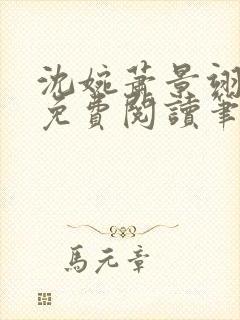 沈婉萧景翊
免費閱讀筆
馬元章